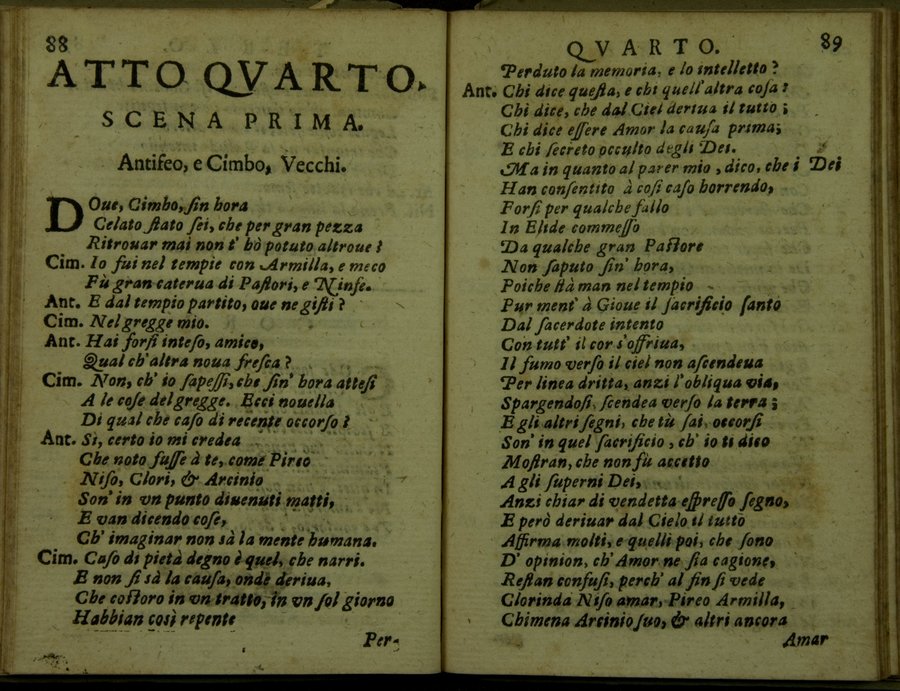 88
ATTO QVARTO.
SCENA PRIMA.
Antifeo, e Cimbo, Vecchi.
DOue, Cimbo, ſin hora
Celato ſtato ſei, che per gran pezza
Ritrouar mai non t' hò potuto altroue?
Cim. Io fui nel tempie con Armilla, e meco
Fù gran caterua di Paſtori, e Ninfe.
Ant. E dal tempio partito, oue ne giſti?
Cim. Nel gregge mio.
Ant. Hai forſi inteſo, amico,
Qual ch'altra noua freſca?
Cim. Non, ch' io ſapeſſi, che ſin' hora atteſi
A le coſe del gregge. Ecci nouella
Di qual che caſo di recente occorſo?
Ant. Si, certo io mi credea
Che noto fuſſe à te, come Pireo
Niſo, Clori, & Arcinio
Son' in vn punto diuenuti matti,
E van dicendo coſe,
Ch' imaginar non sà la mente humana.
Cim. Caſo di pietà degno è quel, che narri.
E non ſi sà la cauſa, onde deriua,
Che coſtoro in vn tratto, in vn ſol giorno
Habbian così repente
Per-
QVARTO. 89
Perduto la memoria, e lo intelletto?
Ant. Chi dice queſta, e chi quell'altra coſa?
Chi dice, che dal Ciel deriua il tutto;
Chi dice eſſere Amor la cauſa prima;
E chi ſecreto occulto degli Dei.
Ma in quanto al parer mio, dico, che i Dei
Han conſentito à coſi caſo horrendo,
Forſi per qualche fallo
In Elide commeſſo
Da qualche gran Paſtore
Non ſaputo ſin' hora,
Poiche ſtà man nel tempio
Pur ment' à Gioue il ſacrificio ſanto
Dal ſacerdote intento
Con tutt' il cor s'offriua,
Il fumo verſo il ciel non aſcendeua
Per linea dritta, anzi l'obliqua via,
Spargendoſi, ſcendea verſo la terra;
E gli altri ſegni, che tù ſai, occorſi
Son' in quel ſacrificio, ch' io ti dico
Moſtran, che non fù accetto
A gli ſuperni Dei,
Anzi chiar di vendetta eſpreſſo ſegno,
E però deriuar dal Cielo il tutto
Affirma molti, e quelli poi, che ſono
D' opinion, ch' Amor ne ſia cagione,
Reſtan confuſi, perch' al fin ſi vede
Clorinda Niſo amar, Pireo Armilla,
Chimena Arcinio ſuo, & altri ancora
Amar